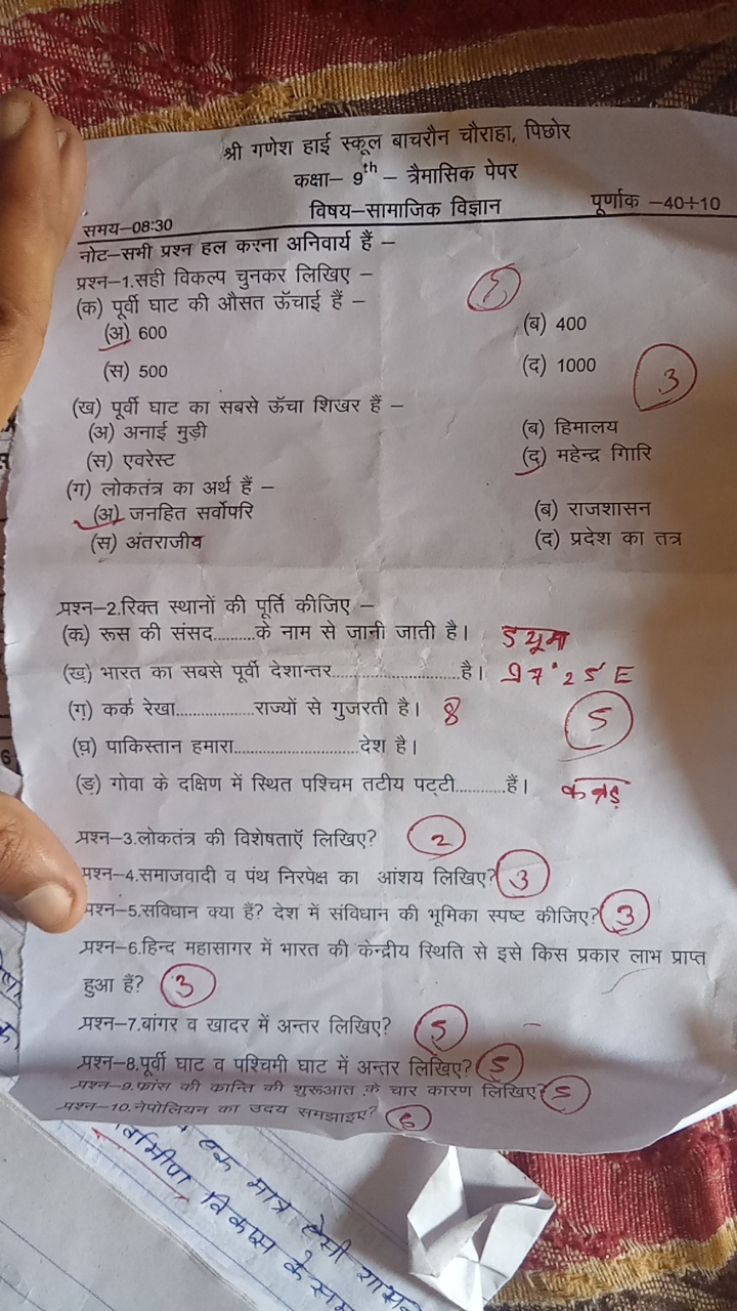 श्री गणेश हाई स्कूल बाचरौन चौराहा, पिछोर
कक्षा– 9th – त्रैमासिक पेपर
समय–08:30 विषय–सामाजिक विज्ञान पूर्णाक –40÷10
नोट–सभी प्रश्न हल करना अनिवार्य हैं –
प्रश्न–1.सही विकल्प चुनकर लिखिए –
(क) पूर्वी घाट की औसत ऊँचाई हैं –
(अ) 600 (ब) 400
(स) 500 (द) 1000 3
(ख) पूर्वी घाट का सबसे ऊँचा शिखर हैं –
(अ) अनाई मुड़ी (ब) हिमालय
(स) एवरेस्ट (द) महेन्द्र गिारि
(ग) लोकतंत्र का अर्थ हैं –
(अ) जनहित सर्वोपरि (ब) राजशासन
(स) अंतराजीय (द) प्रदेश का तत्र
प्रश्न–2.रिक्त स्थानों की पूर्ति कीजिए –
(क) रूस की संसद..........के नाम से जानी जाती है। ड्यूमा
(ख) भारत का सबसे पूर्वी देशान्तर..............................है। 97°25' E
(ग) कर्क रेखा..................राज्यों से गुजरती है। 8 5
(घ) पाकिस्तान हमारा.............................देश है।
(ङ) गोवा के दक्षिण में स्थित पश्चिम तटीय पट्टी............हैं। कन्नड़
प्रश्न–3.लोकतंत्र की विशेषताएँ लिखिए? 2
प्रश्न–4.समाजवादी व पंथ निरपेक्ष का आंशय लिखिए? 3
प्रश्न–5.सविधान क्या हैं? देश में संविधान की भूमिका स्पष्ट कीजिए? 3
प्रश्न–6.हिन्द महासागर में भारत की केन्द्रीय स्थिति से इसे किस प्रकार लाभ प्राप्त
हुआ हैं? 3
प्रश्न–7.बांगर व खादर में अन्तर लिखिए? 5
प्रश्न–8.पूर्वी घाट व पश्चिमी घाट में अन्तर लिखिए? 5
प्रश्न–9.फ्रांस की कान्ति की शुरूआत के चार कारण लिखिए? 5
प्रश्न–10.नेपोलियन का उदय समझाइए? 6
एक मात्र ऐसी
विकास के